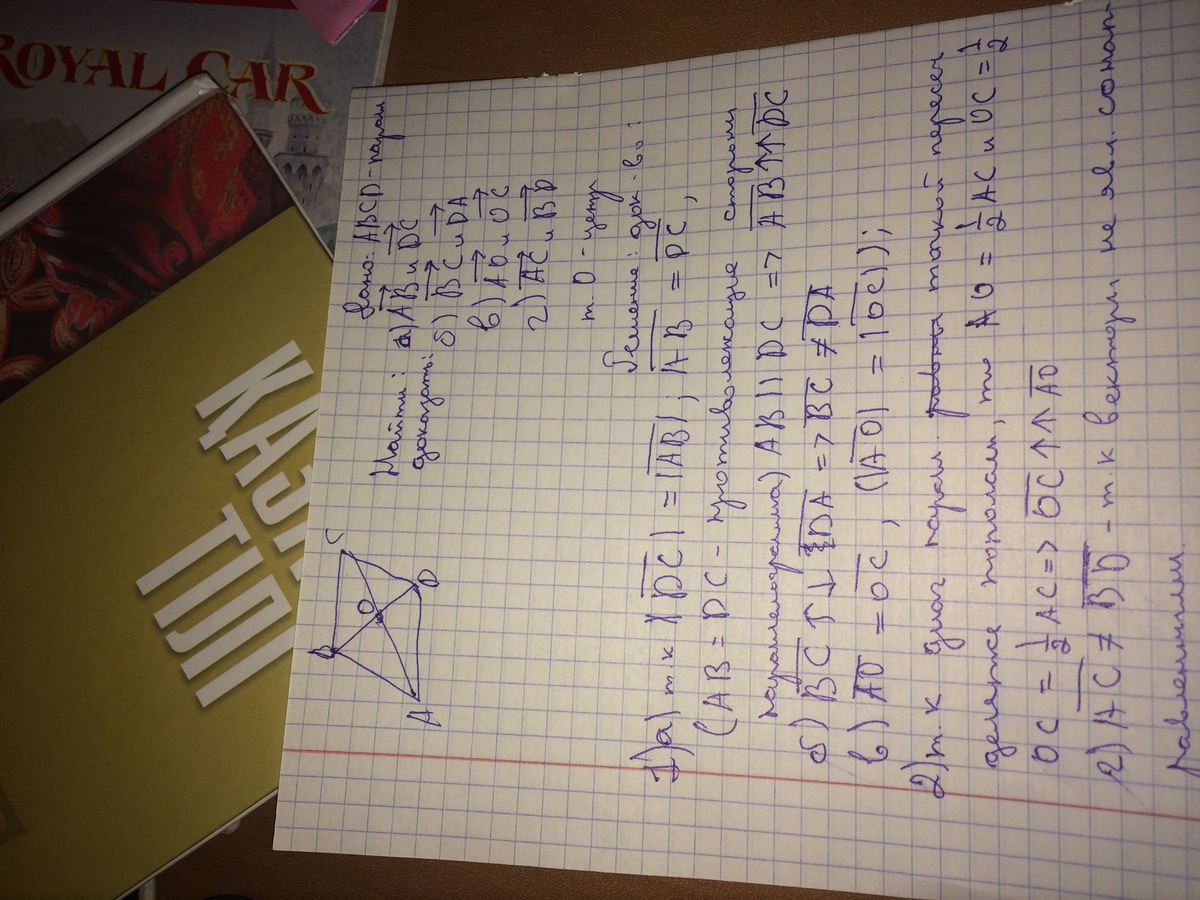 ROYAL CAR
ҚАЗ
ТІЛІ
B
C
O
A
D
Дано: ABCD - парал
Найти: а) AB и DC
доказать: б) BC и DA
в) AO и OC
г) AC и BD
т O - центр
Решение: док-во:
1) а) т.к |DC| = |AB|; AB = DC,
(AB = DC - противолежащие стороны
параллелограмма) AB || DC => AB ↑↑ DC
б) BC ↑↓ DA => BC ≠ DA
в) AO = OC, (|AO| = |OC|);
2) т.к диаг парал. точкой пересеч
делятся пополам, то AO = 1/2 AC и OC = 1/2
OC = 1/2 AC => OC ↑↑ AO
г) AC ≠ BD - т.к векторы не явл. сонап-
равленными.